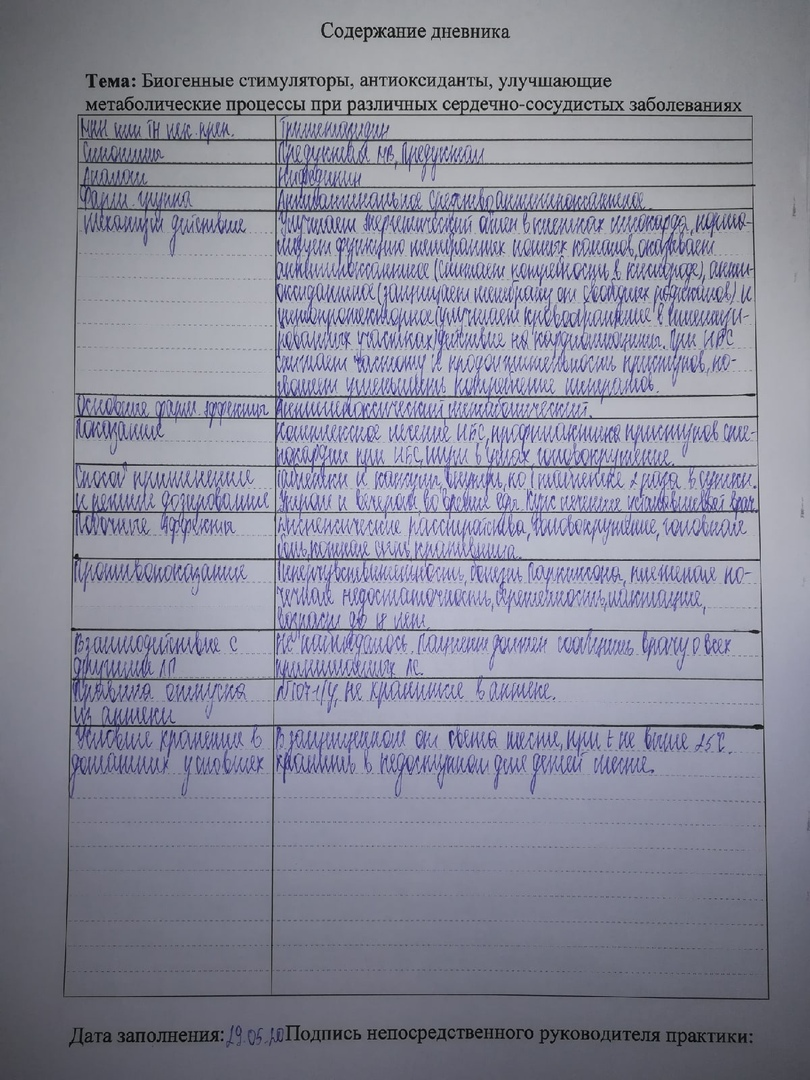 Содержание дневника
Тема: Биогенные стимуляторы, антиоксиданты, улучшающие
метаболические процессы при различных сердечно-сосудистых заболеваниях
МНН или ТН лек. преп. Триметазидин
Синонимы Предуктал МВ, Предуктал
Аналоги Нифедипин
Фарм. группа Антиангинальное средство антигипоксантное.
Механизм действие Улучшает энергетический обмен в клетках миокарда, норма-
лизует функцию мембранных ионных каналов, оказывает
антигипоксантное (снижает потребность в кислороде), анти-
оксидантное (защищает мембрану от свободных радикалов) и
цитопротекторное (улучшает кровообращение в ишемизи-
рованных участках) действие на кардиомиоциты. При ИБС
снижает частоту и продолжительность приступов, по-
зволяет уменьшить потребление нитратов.
Основные фарм. эффекты Антигипоксический метаболический.
Показание Комплексное лечение ИБС, профилактика приступов сте-
нокардии при ИБС, шум в ушах, головокружение.
Способ применение Таблетки и капсулы внутрь, по 1 таблетке 2 раза в сутки.
и режима дозирование Утром и вечером во время еды. Курс лечение устанавливает врач.
Побочные эффекты Диспепсические расстройства, головокружение, головная
боль, кожная сыпь, крапивница.
Противопоказание Гиперчувствительность, болезнь Паркинсона, тяжелая по-
чечная недостаточность, беременность, лактация,
возраст до 18 лет.
Взаимодействие с Не наблюдалось. Пациент должен сообщить врачу о всех
другими ЛП принимаемых ЛС.
Правила отпуска №107-1/у, не хранится в аптеке.
из аптеки
Условие хранение в В защищенном от света месте, при t не выше 25°С.
домашних условиях хранить в недоступном для детей месте.
Дата заполнения: 29.05.20 Подпись непосредственного руководителя практики: